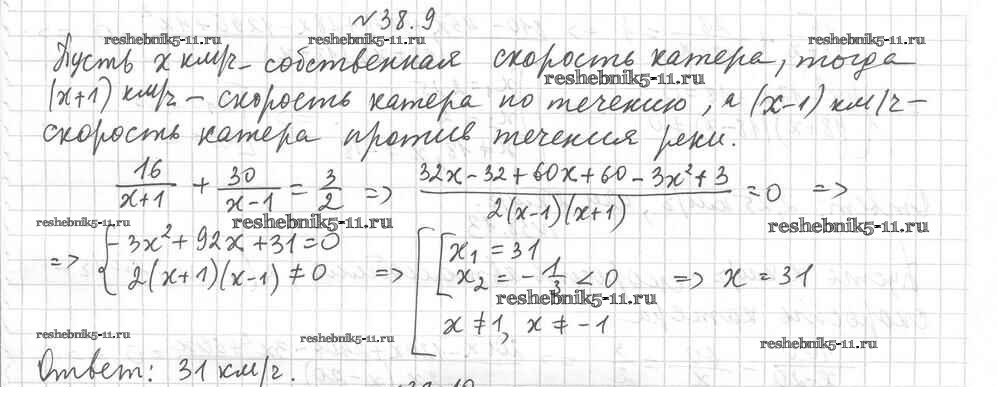 №38.9
reshebnik5-11.ru reshebnik5-11.ru reshebnik5-11.ru
Пусть x км/ч – собственная скорость катера, тогда
reshebnik5-11.ru
(x+1) км/ч – скорость катера по течению, а (x-1) км/ч –
скорость катера против течения реки.
16/(x+1) + 30/(x-1) = 3/2 => (32x - 32 + 60x + 60 - 3x² + 3)/(2(x-1)(x+1)) = 0 =>
reshebnik5-11.ru reshebnik5-11.ru reshebnik5-11.ru
=> { -3x² + 92x + 31 = 0 => [ [ x₁ = 31
2(x+1)(x-1) ≠ 0 x₂ = -1/3 < 0 => x = 31
reshebnik5-11.ru
x ≠ 1, x ≠ -1
reshebnik5-11.ru reshebnik5-11.ru reshebnik5-11.ru
Ответ: 31 км/ч.